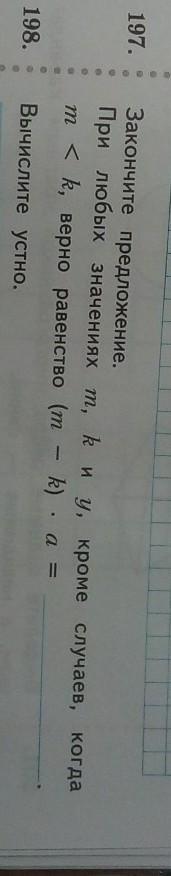 197. Закончите предложение.
При любых значениях m, k и y, кроме случаев, когда
m < k, верно равенство (m − k) · a = ____.
198. Вычислите устно.